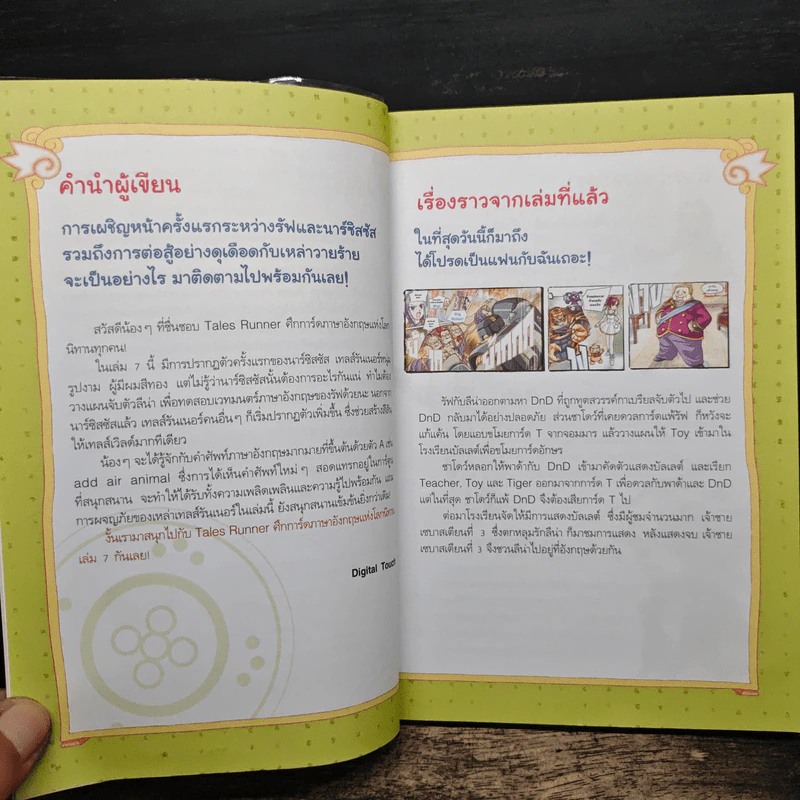 คำนำผู้เขียน
การเผชิญหน้าครั้งแรกระหว่างรัฟและนาร์ซิสซัส
รวมถึงการต่อสู้อย่างดุเดือดกับเหล่าวายร้าย
จะเป็นอย่างไร มาติดตามไปพร้อมกันเลย!
สวัสดีน้องๆ ที่ชื่นชอบ Tales Runner ศึกการ์ดภาษาอังกฤษแห่งโลก
นิทานทุกคน!
ในเล่ม 7 นี้ มีการปรากฏตัวครั้งแรกของนาร์ซิสซัส เทลส์รันเนอร์หนุ่ม
รูปงาม ผู้มีผมสีทอง แต่ไม่รู้ว่านาร์ซิสซัสนั้นต้องการอะไรกันแน่ ทำไมต้อง
วางแผนจับตัวลีน่า เพื่อทดสอบเวทมนตร์ภาษาอังกฤษของรัฟด้วยนะ นอกจาก
นาร์ซิสซัสแล้ว เทลส์รันเนอร์คนอื่นๆ ก็เริ่มปรากฏตัวเพิ่มขึ้น ซึ่งช่วยสร้างสีสัน
ให้เทลส์เวิลด์มากทีเดียว
น้องๆ จะได้รู้จักกับคำศัพท์ภาษาอังกฤษมากมายที่ขึ้นต้นด้วยตัว A เช่น
add air animal ซึ่งการได้เห็นคำศัพท์ใหม่ๆ สอดแทรกอยู่ในการ์ตูน
ที่สนุกสนาน จะทำให้ได้รับทั้งความเพลิดเพลินและความรู้ไปพร้อมกัน แถม
การผจญภัยของเหล่าเทลส์รันเนอร์ในเล่มนี้ ยังสนุกสนานเข้มข้นยิ่งกว่าเดิม
งั้นเรามาสนุกไปกับ Tales Runner ศึกการ์ดภาษาอังกฤษแห่งโลกนิทาน
เล่ม 7 กันเลย!
Digital Touch
เรื่องราวจากเล่มที่แล้ว
ในที่สุดวันนี้ก็มาถึง
ได้โปรดเป็นแฟนกับฉันเถอะ!
รัฟกับลีน่าออกตามหา DnD ที่ถูกทูตสวรรค์กาเบรียลจับตัวไป และช่วย
DnD กลับมาได้อย่างปลอดภัย ส่วนชาโดว์ที่เคยดวลการ์ดแพ้รัฟ ก็หวังจะ
แก้แค้น โดยแอบขโมยการ์ด T จากจอมมาร แล้ววางแผนให้ Toy เข้ามาใน
โรงเรียนบัลเลต์เพื่อขโมยการ์ดอักษร
ชาโดว์หลอกให้พาด้ากับ DnD เข้ามาคัดตัวแสดงบัลเลต์ และเรียก
Teacher, Toy และ Tiger ออกมาจากการ์ด T เพื่อดวลกับพาด้าและ DnD
แต่ในที่สุด ชาโดว์ก็แพ้ DnD จึงต้องเสียการ์ด T ไป
ต่อมาโรงเรียนจัดให้มีการแสดงบัลเลต์ ซึ่งมีผู้ชมจำนวนมาก เจ้าชาย
เซบาสเตียนที่ 3 ซึ่งตกหลุมรักลีน่า ก็มาชมการแสดง หลังแสดงจบ เจ้าชาย
เซบาสเตียนที่ 3 จึงชวนลีน่าไปอยู่ที่อังกฤษด้วยกัน